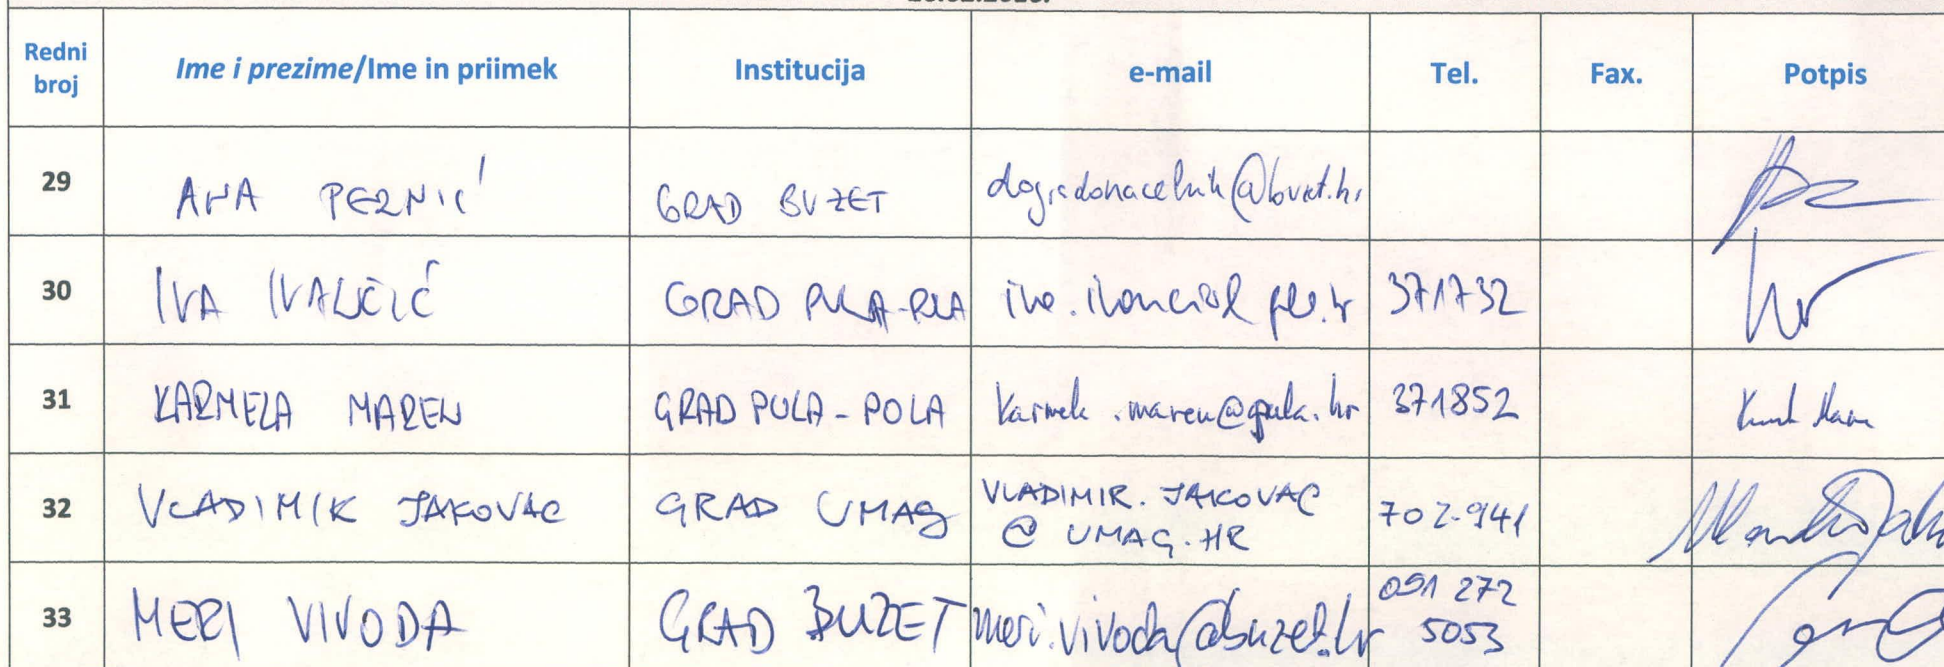 Redni broj Ime i prezime/Ime in priimek Institucija e-mail Tel. Fax. Potpis
29 ANA PERNIĆ GRAD BUZET dogradonacelnik@buzet.hr
30 IVA GRAD PULA-POLA 371732
31 KARMELA MAREN GRAD PULA - POLA karmela.maren@pula.hr 371852
32 VLADIMIR JAKOVAC GRAD UMAG VLADIMIR.JAKOVAC
@ UMAG.HR 702-941
33 MERI VIVODA GRAD BUZET meri.vivoda@buzet.hr 091 272
5053